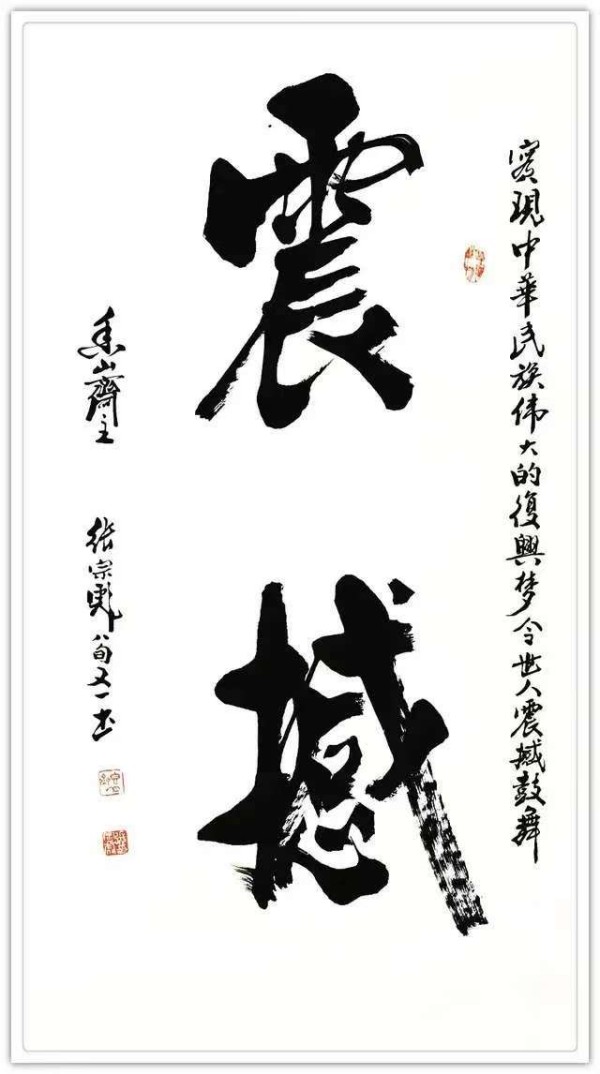 實現中華民族伟大的復興梦令世人震撼鼓舞
震撼
香山齋主
张宗彪八旬又一书